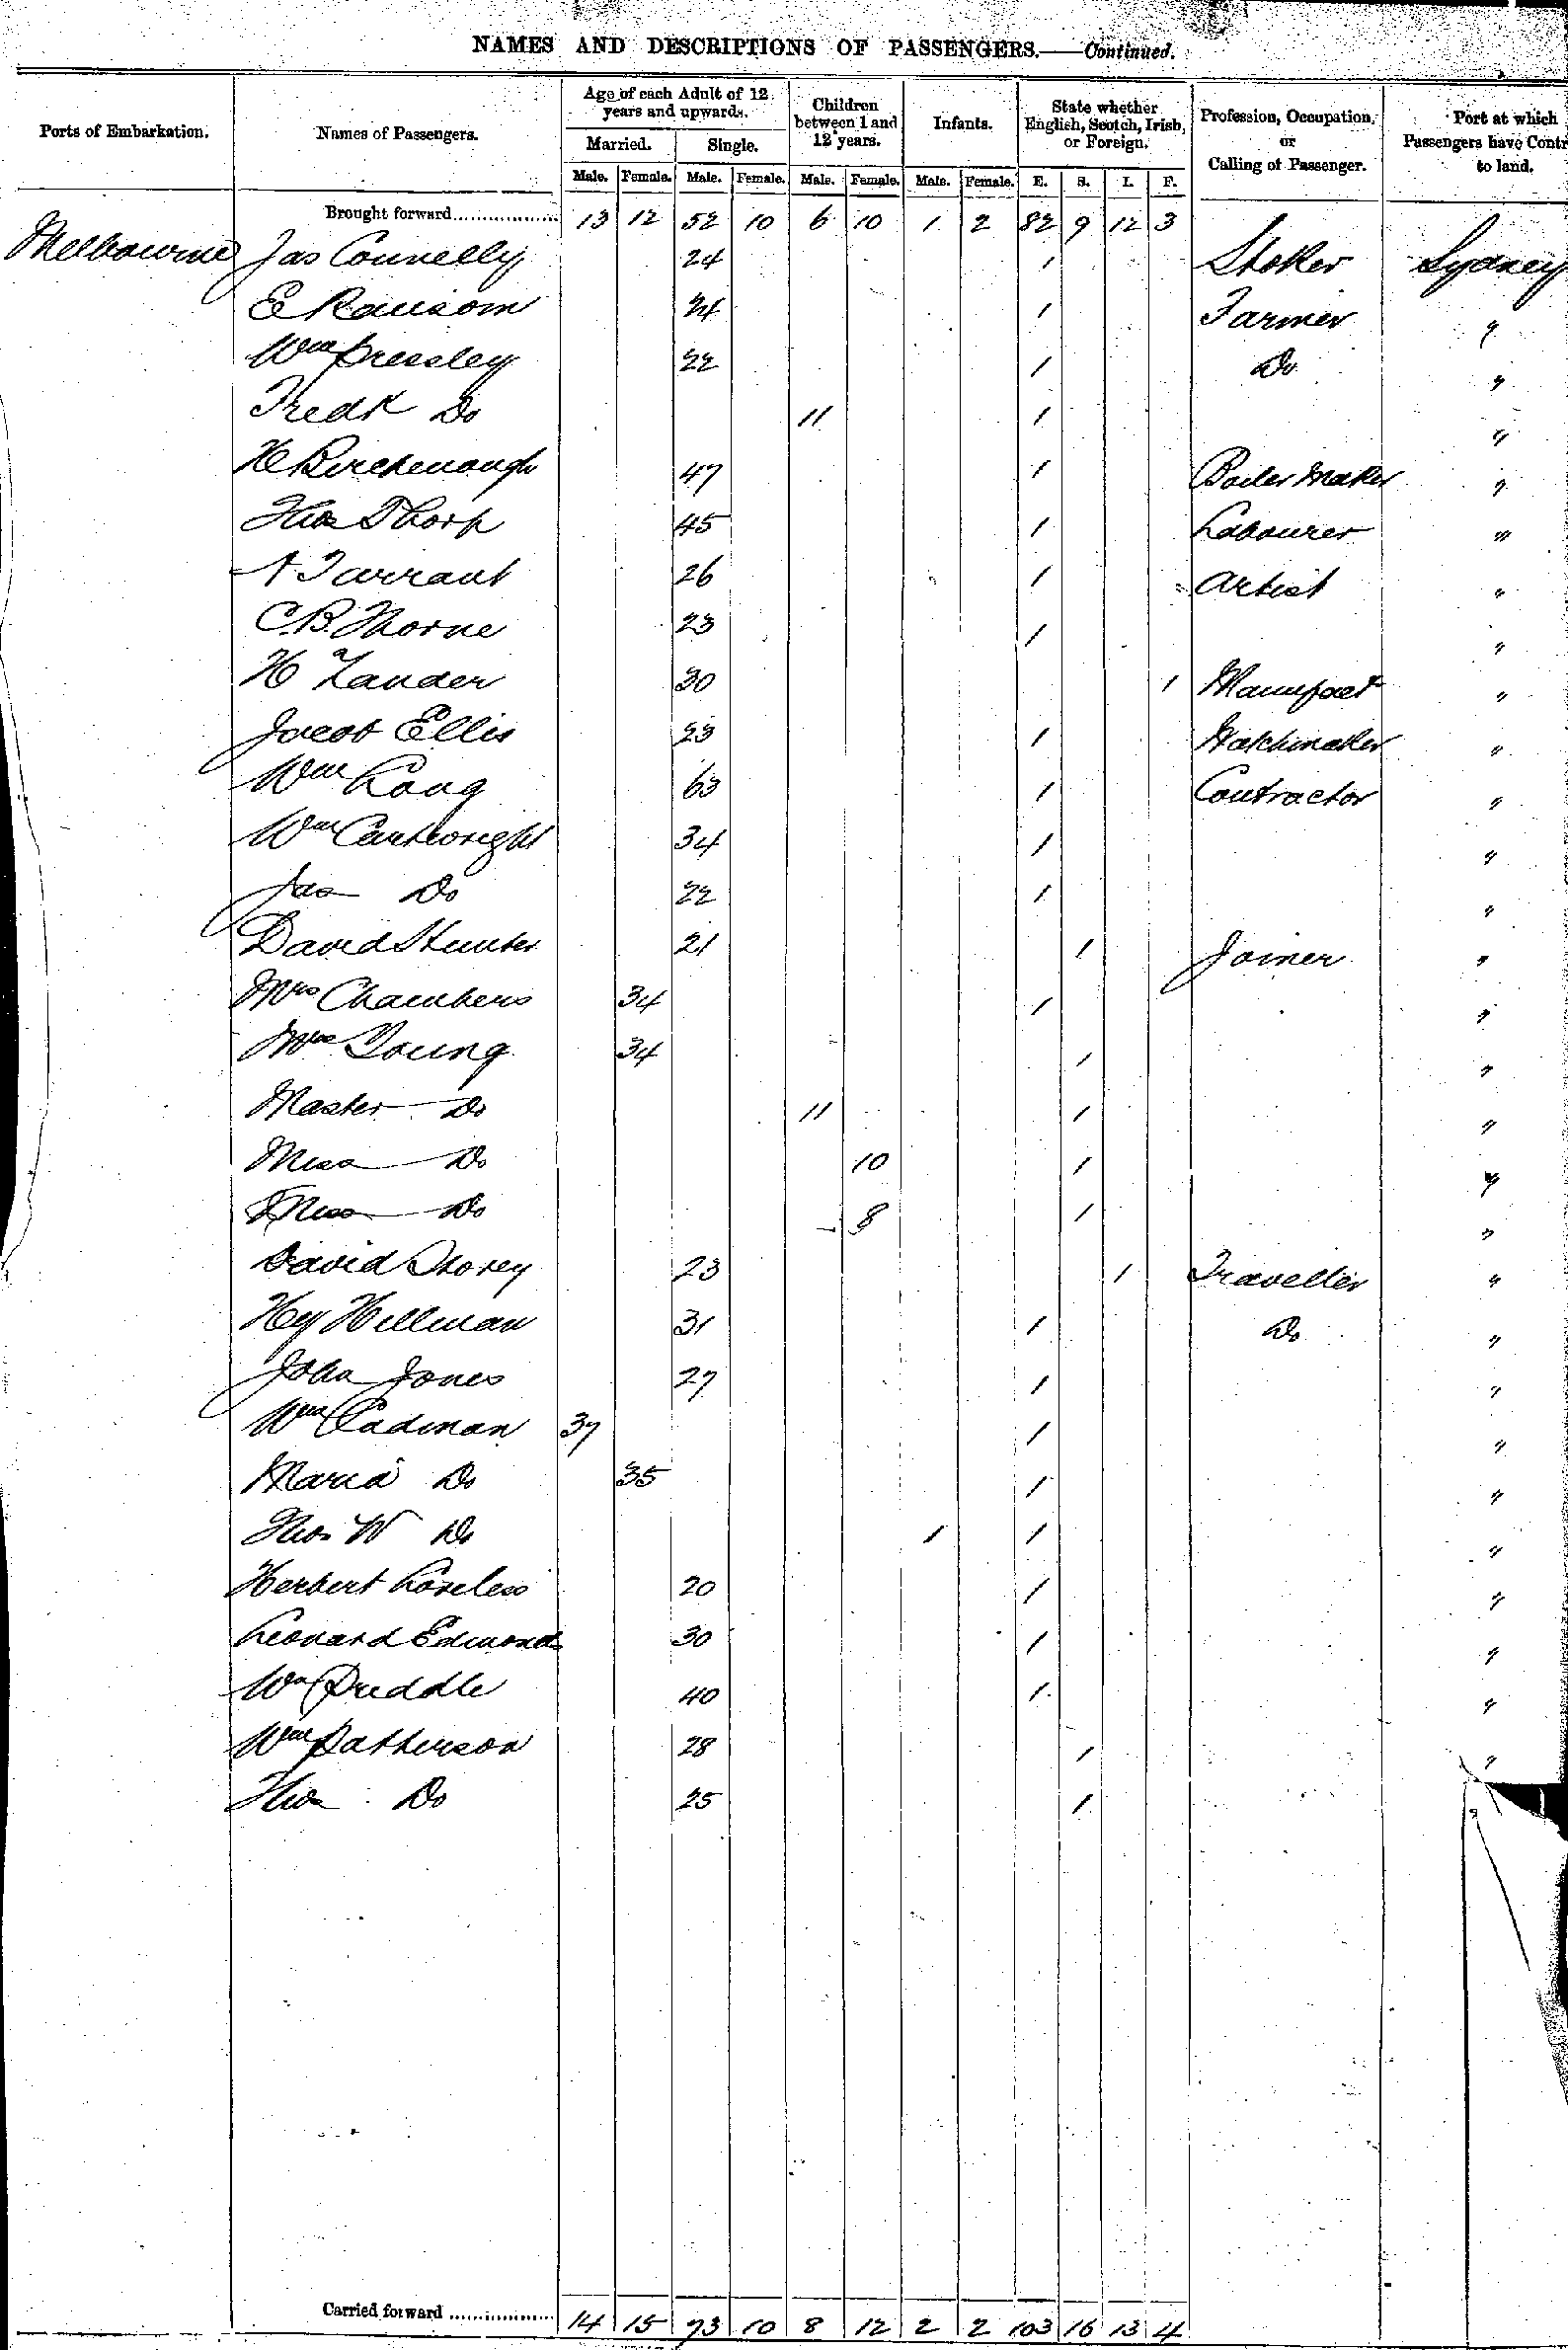 NAMES AND DESCRIPTIONS OF PASSENGERS.—Continued.
Ports of Embarkation. Names of Passengers. Age of each Adult of 12 years and upwards. Married. Male. Female. Single. Male. Female. Children between 1 and 12 years. Male. Female. Infants. Male. Female. State whether English, Scotch, Irish, or Foreign. E. S. I. F. Profession, Occupation, or Calling of Passenger. Port at which Passengers have Contr to land.
Brought forward 13 12 52 10 6 10 1 2 82 9 12 3
Melbourne Jas Connelly 24 1 Stoker Sydney
E Ransom 24 1 Farmer "
Wm Pressley 22 1 Do "
Fredk Do 11 1 "
H Birchenough 47 1 Boiler Maker "
Thos Thorp 45 1 Labourer "
A Tarrant 26 1 Artist "
C.B. Thorne 23 1 "
H Zander 30 1 Manufact "
Jacob Ellis 23 1 Watchmaker "
Wm Long 63 1 Contractor "
Wm Cartwright 34 1 "
Jas Do 22 1 "
David Hunter 21 1 Joiner "
Mrs Chambers 34 1 "
Mrs Young 34 1 "
Master Do 11 1 "
Miss Do 10 1 "
Miss Do 8 1 "
David Storey 23 1 Traveller "
Hy Hillman 31 1 Do "
John Jones 27 1 "
Wm Cadman 37 1 "
Maria Do 35 1 "
Thos W Do 1 1 "
Herbert Loveless 20 1 "
Leonard Edmonds 30 1 "
Wm Puddle 40 1 "
Wm Patterson 28 1 "
Thos Do 25 1 "
Carried forward 14 15 73 10 8 12 2 2 103 16 13 4